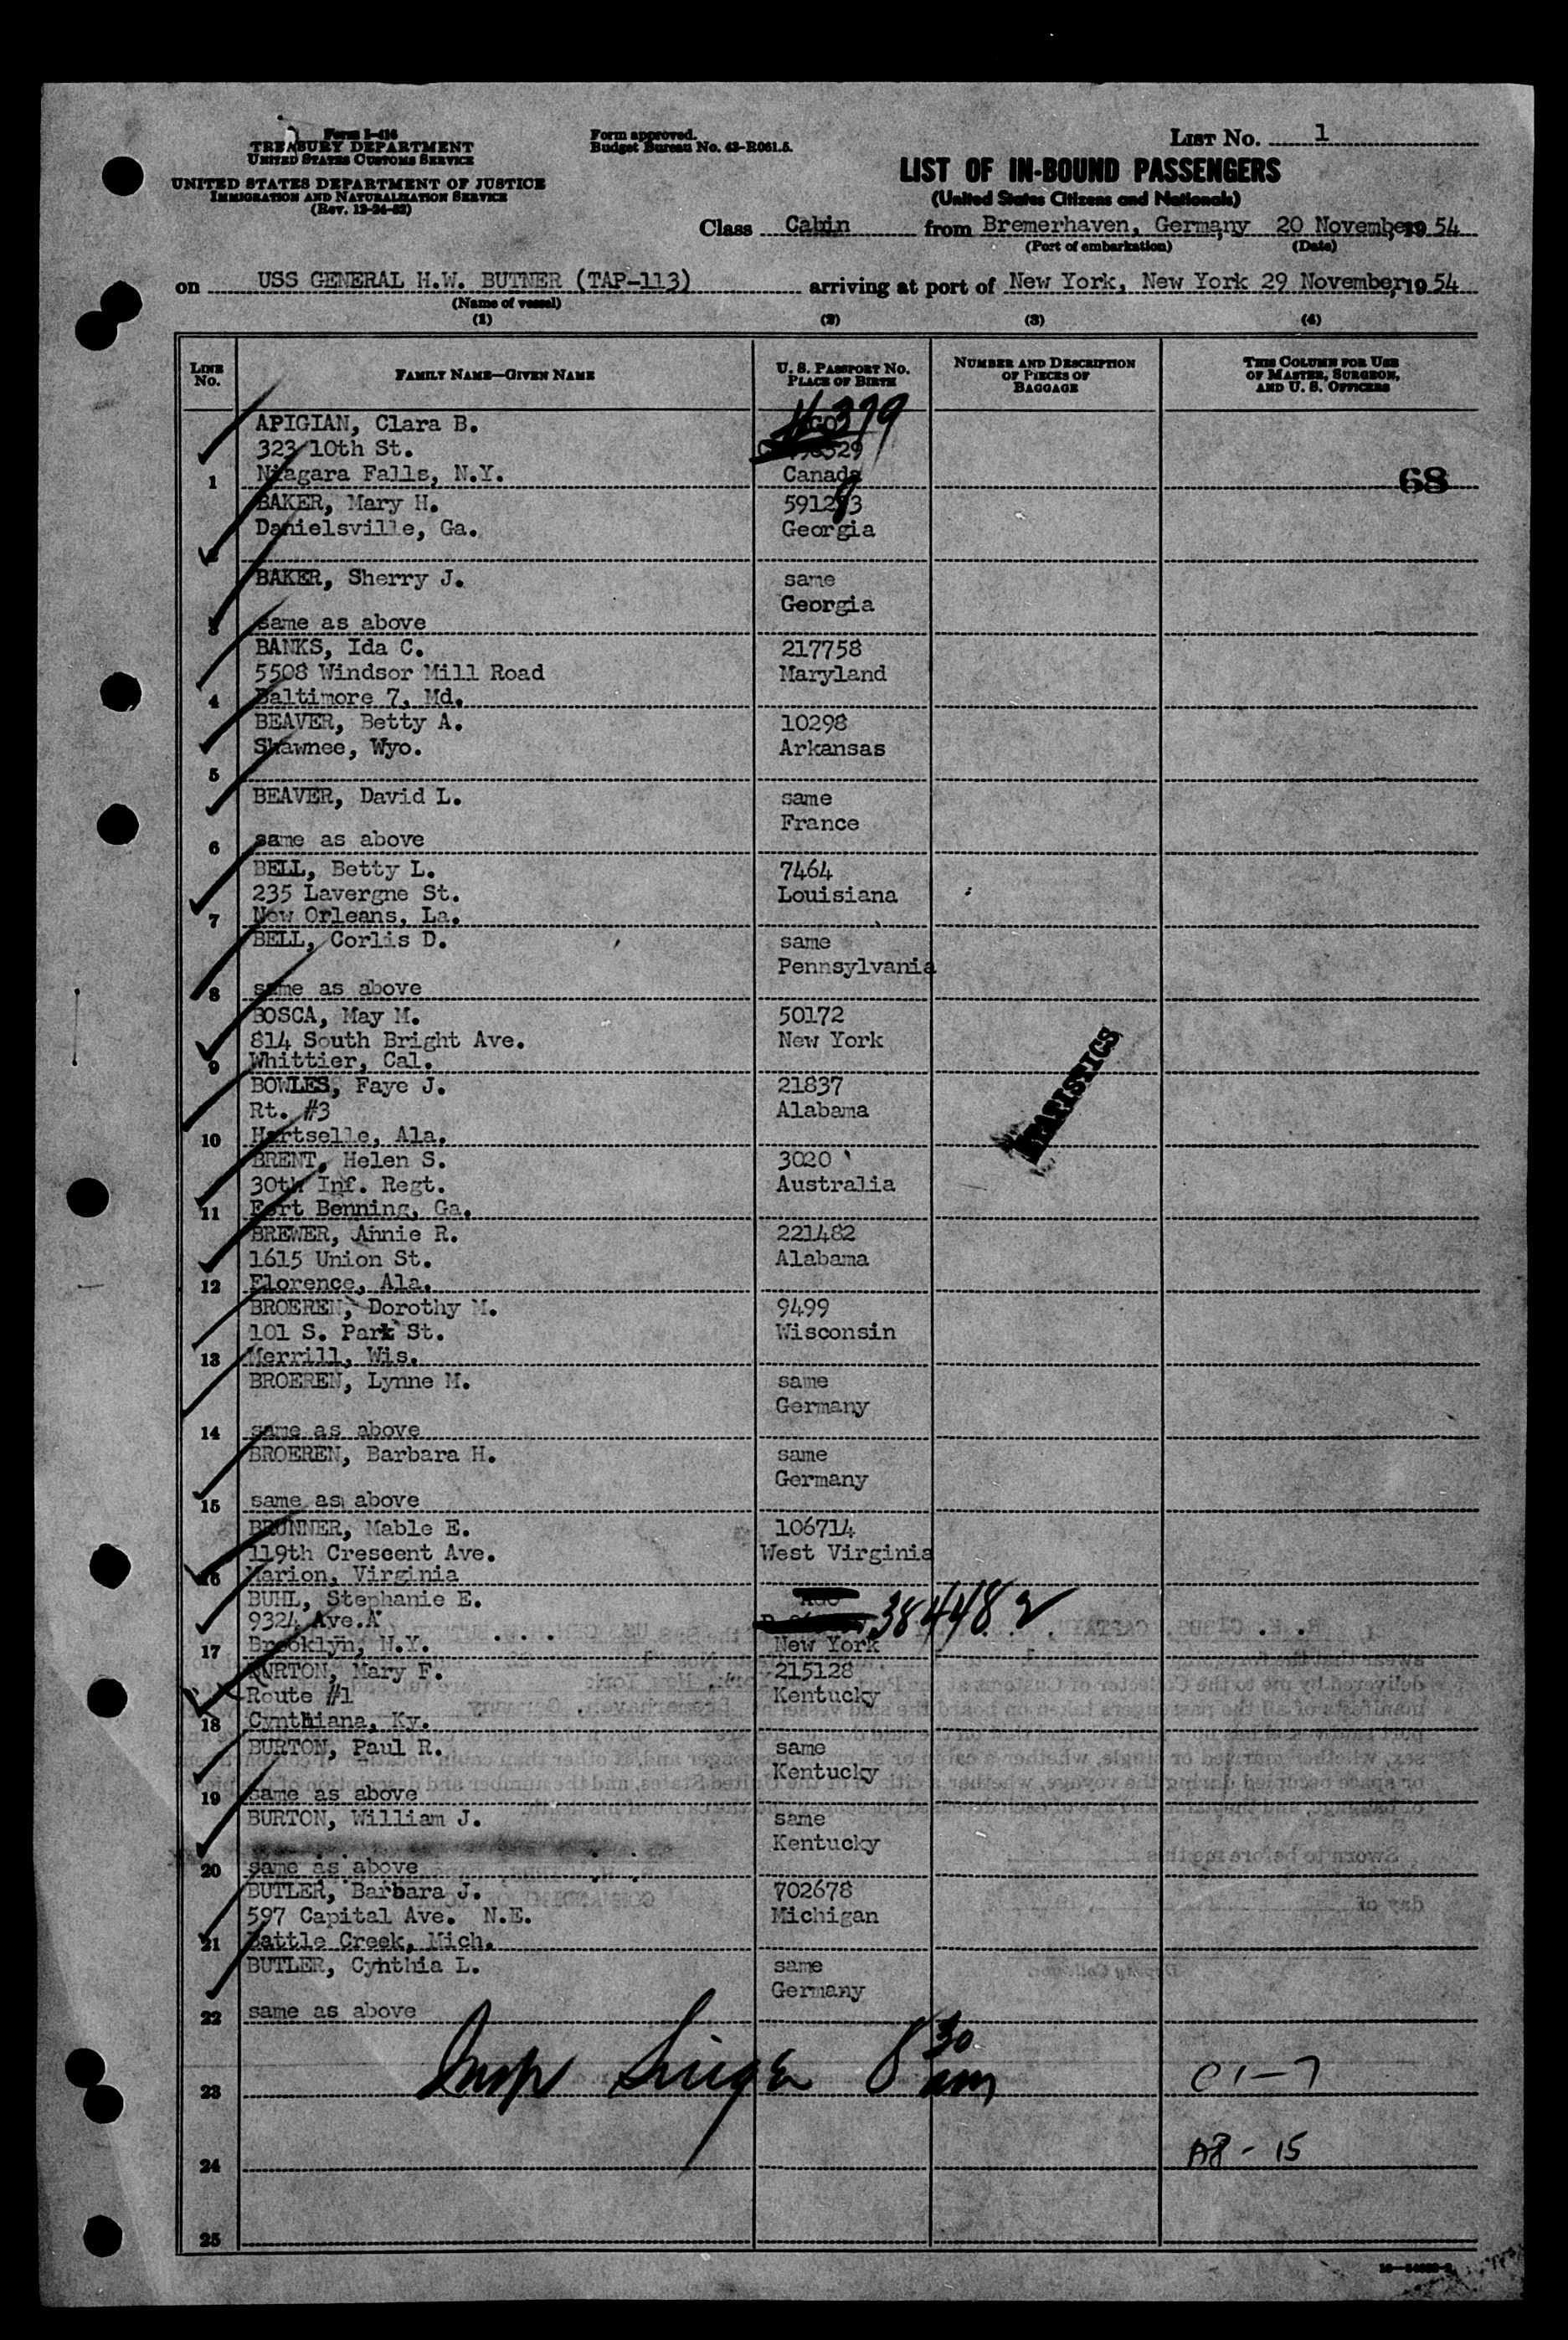 Form I-416
TREASURY DEPARTMENT
UNITED STATES CUSTOMS SERVICE
UNITED STATES DEPARTMENT OF JUSTICE
IMMIGRATION AND NATURALIZATION SERVICE
(Rev. 12-24-52)
Form approved.
Budget Bureau No. 43-R061.5.
LIST No. 1
LIST OF IN-BOUND PASSENGERS
(United States Citizens and Nationals)
Class Cabin from Bremerhaven, Germany, 20 November, 1954
(Port of embarkation) (Date)
on USS GENERAL H.W. BUTNER (TAP-113) arriving at port of New York, New York 29 November, 1954
(Name of vessel)
(1) (2) (3) (4)
LINE No.
FAMILY NAME—GIVEN NAME
U. S. PASSPORT No.
PLACE OF BIRTH
NUMBER AND DESCRIPTION
OF PIECES OF
BAGGAGE
THIS COLUMN FOR USE
OF MASTER, SURGEON,
AND U. S. OFFICERS
APIGIAN, Clara B.
323 10th St.
1 Niagara Falls, N.Y. Canada 68
BAKER, Mary H.
Danielsville, Ga. Georgia
2
BAKER, Sherry J. same
Georgia
3 same as above
BANKS, Ida C. 217758
5508 Windsor Mill Road Maryland
4 Baltimore 7, Md.
BEAVER, Betty A. 10298
Shawnee, Wyo. Arkansas
5
BEAVER, David L. same
France
6 same as above
BELL, Betty L. 7464
235 Lavergne St. Louisiana
7 New Orleans, La.
BELL, Corlis D. same
Pennsylvania
8 same as above
BOSCA, May M. 50172
814 South Bright Ave. New York
9 Whittier, Cal.
BOWLES, Faye J. 21837
Rt. #3 Alabama
10 Hartselle, Ala.
STATISTICS
BRENT, Helen S. 3020
30th Inf. Regt. Australia
11 Fort Benning, Ga.
BREWER, Annie R. 221482
1615 Union St. Alabama
12 Florence, Ala.
BROEREN, Dorothy M. 9499
101 S. Park St. Wisconsin
13 Merrill, Wis.
BROEREN, Lynne M. same
Germany
14 same as above
BROEREN, Barbara H. same
Germany
15 same as above
BRUNNER, Mable E. 106714
119th Crescent Ave. West Virginia
16 Marion, Virginia
BUHL, Stephanie E.
9324 Ave.A 384482
17 Brooklyn, N.Y. New York
BURTON, Mary F. 215128
Route #1 Kentucky
18 Cynthiana, Ky.
BURTON, Paul R. same
Kentucky
19 same as above
BURTON, William J. same
Kentucky
20 same as above
BUTLER, Barbara J. 702678
597 Capital Ave. N.E. Michigan
21 Battle Creek, Mich.
BUTLER, Cynthia L. same
Germany
22 same as above
Insp Singer 8 30 am
23
24
25